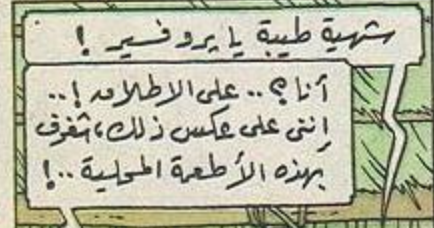 شهية طيبة يا بروفسير !
أنا ؟ .. على الاطلاق !..
إننى على عكس ذلك، شغوف
بهذه الأطعمة المحلية ..!